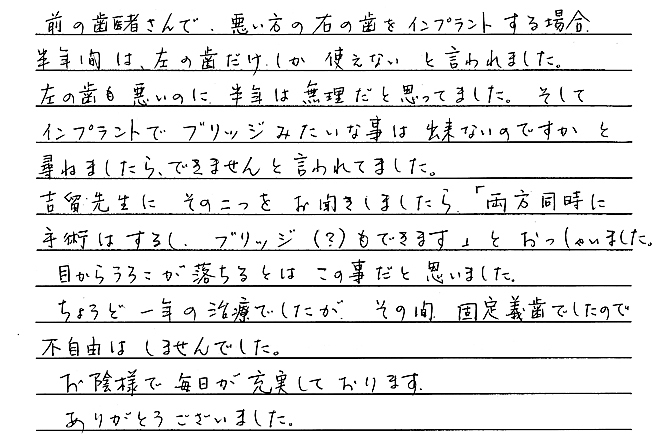 前の歯医者さんで、悪い方の右の歯をインプラントする場合
半年間は、左の歯だけしか 使えない と言われました。
左の歯も悪いのに 半年は無理だと思ってました。そして
インプラントで ブリッジみたいな事は 出来ないのですか と
尋ねましたら、できませんと言われてました。
吉留先生に その二つを お聞きしましたら、「両方同時に
手術はするし、ブリッジ(?)もできます」と おっしゃいました。
目からうろこが落ちるとは この事だと思いました。
ちょうど 一年の治療でしたが、その間 固定義歯でしたので
不自由は しませんでした。
お陰様で 毎日が 充実して おります。
ありがとうございました。